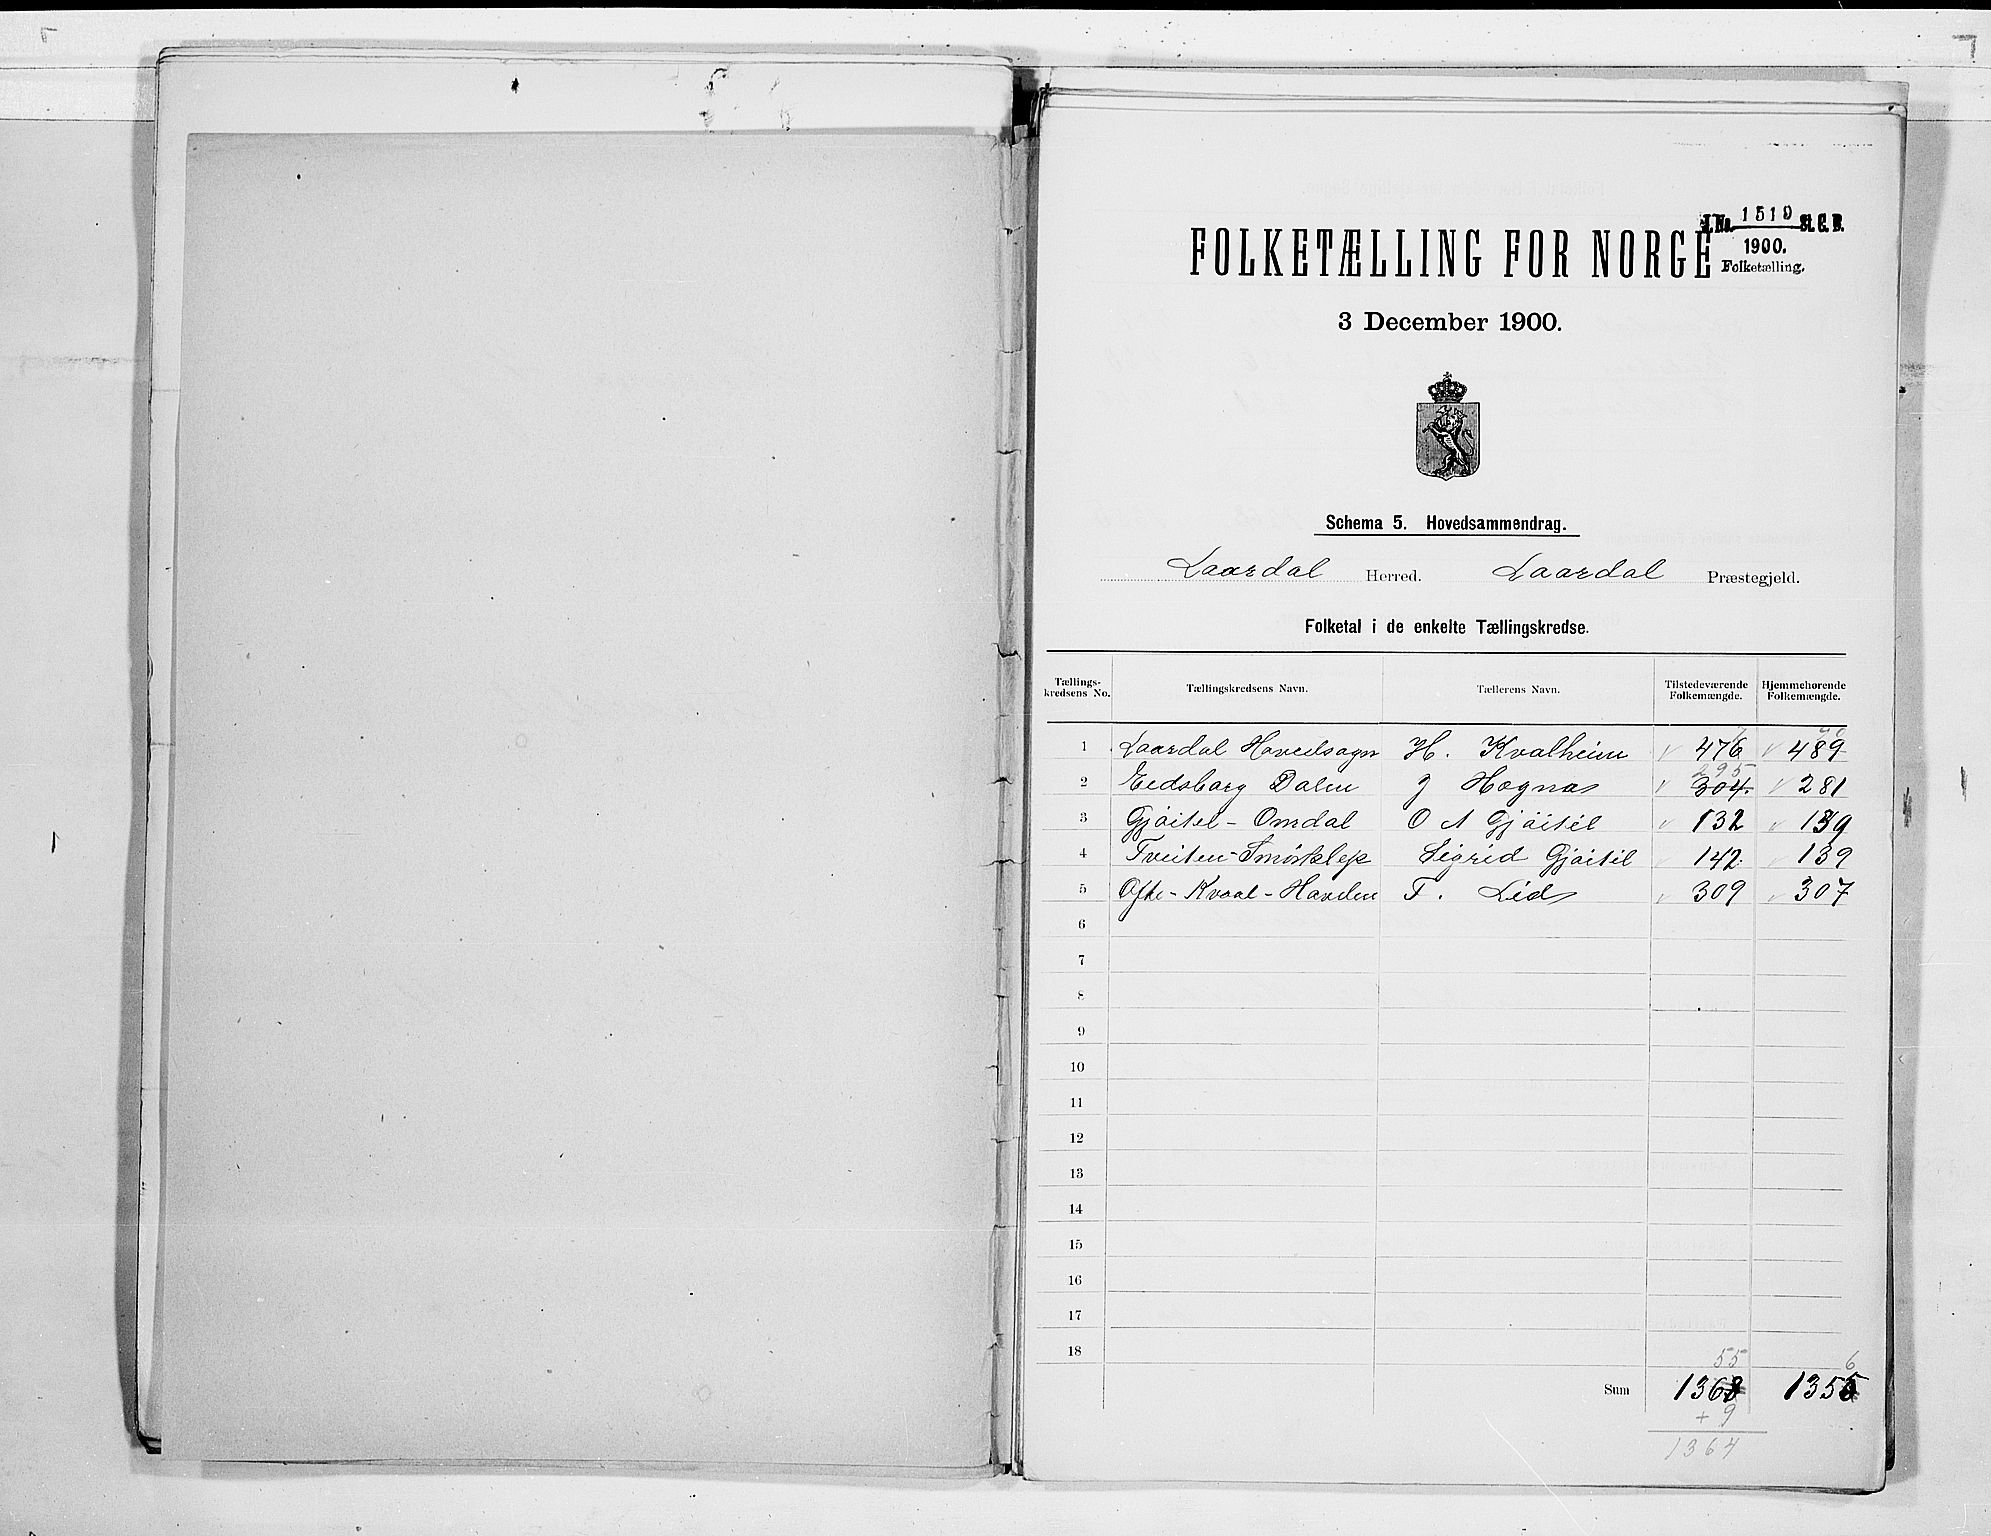 J.No. 1519 St. C. B.
1900.
Folketælling.
FOLKETÆLLING FOR NORGE
3 December 1900.
Schema 5. Hovedsammendrag.
Laardal Herred. Laardal Præstegjeld.
Folketal i de enkelte Tællingskredse.
Tællings-kredsens No. Tællingskredsens Navn. Tællerens Navn. Tilstedeværende Folkemængde. Hjemmehørende Folkemængde.
1 Laardal Hovedsogn H. Kvalheim 476 489
295
2 Eidsborg Dalen J Hognas 304 281
3 Gjøitel - Omdal O A Gjøitil 132 139
4 Tveiten - Smørklep Sigrid Gjøitil 142 139
5 Ofte - Kvaal - Havden T. Lid 309 307
6
7
8
9
10
11
12
13
14
15
16
17
18
55 6
Sum 1363 1355
+ 9
1364